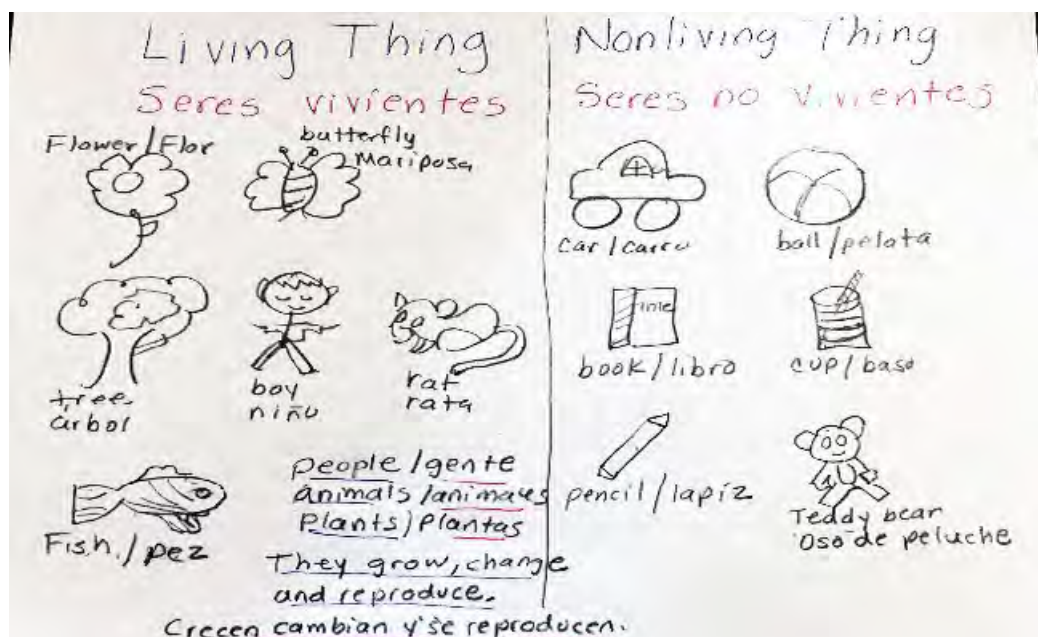 Living Thing
Seres vivientes
Flower/Flor
butterfly
Mariposa
tree
arbol
boy
niño
rat
rata
Fish/pez
people/gente
animals/animales
Plants/Plantas
They grow, change
and reproduce.
Crecen cambian y se reproducen.
Nonliving Thing
Seres no vivientes
car/carro
ball/pelota
book/libro
cup/baso
pencil/lapíz
Teddy bear
Oso de peluche